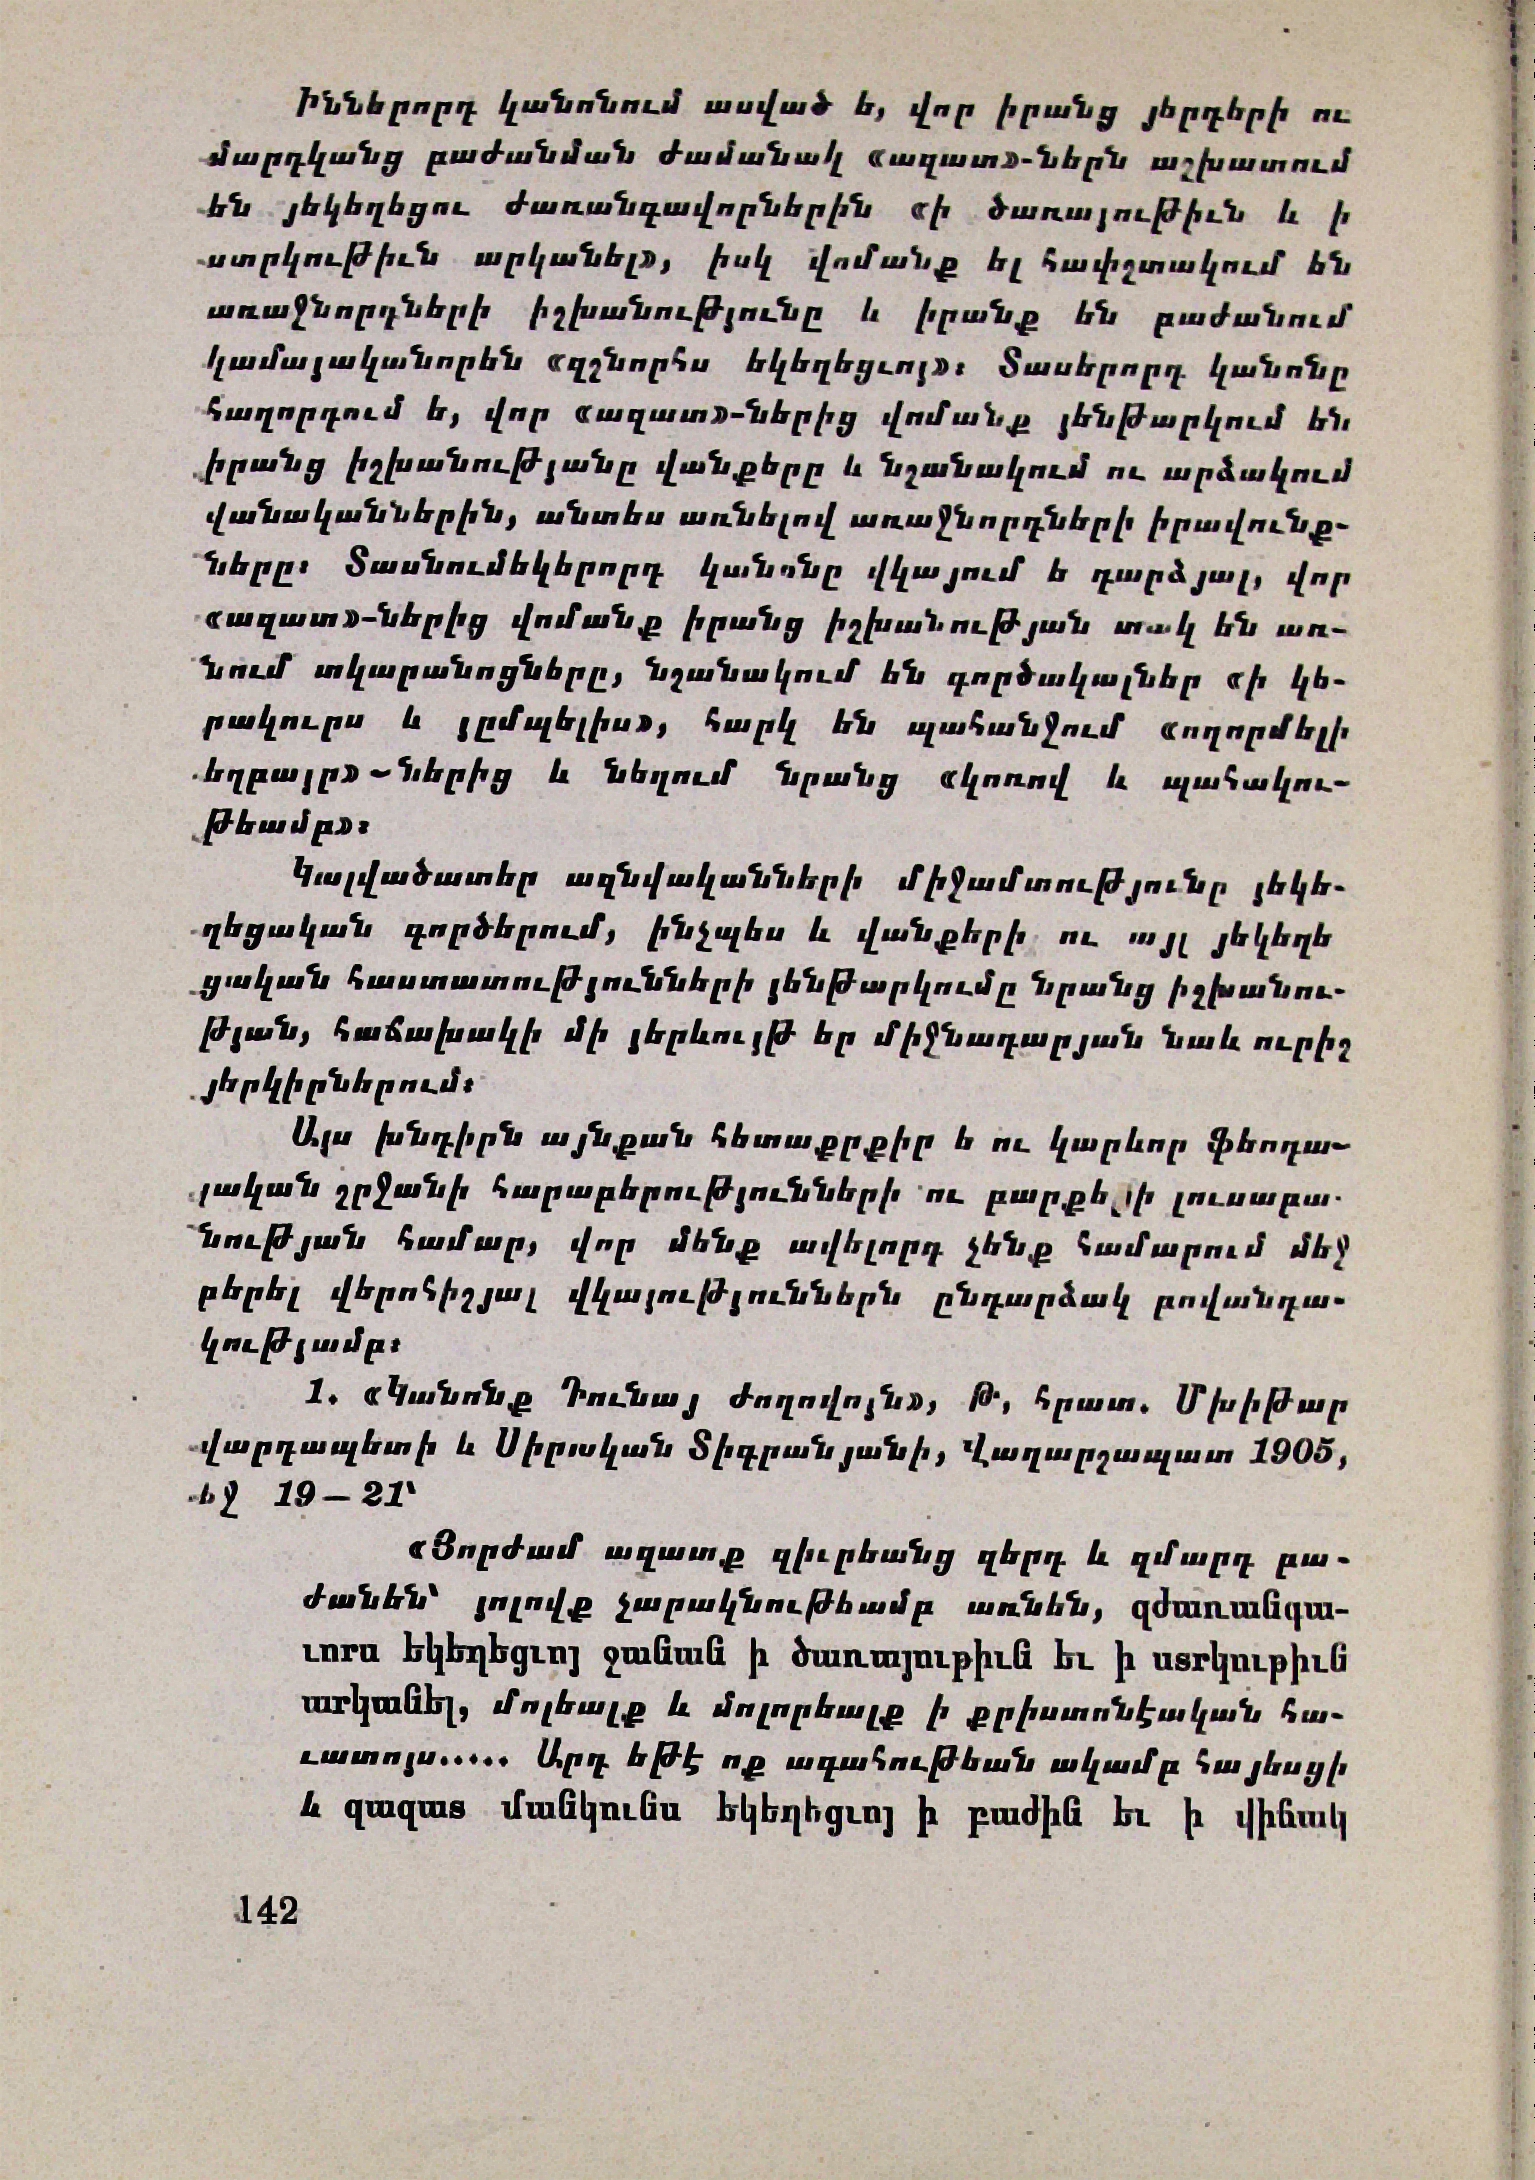 Իններորդ կանոնում ասված ե, վոր իրանց յերդերի ու
մարդկանց բաժանման ժամանակ «ազատ»-ներն աշխատում
են յեկեղեցու ժառանգավորներին «ի ծառայութիւն և ի
ստրկութիւն արկանել», իսկ վոմանք ել հափշտակում են
առաջնորդների իշխանությունը և իրանք են բաժանում
կամայականորեն «զշնորհս եկեղեցւոյ»։ Տասերորդ կանոնը
հաղորդում ե, վոր «ազատ»-ներից վոմանք յենթարկում են
իրանց իշխանությանը վանքերը և նշանակում ու արձակում
վանականներին, անտես առնելով առաջնորդների իրավունք-
ները։ Տասնումեկերորդ կանոնը վկայում ե դարձյալ, վոր
«ազատ»-ներից վոմանք իրանց իշխանության տակ են առ-
նում տկարանոցները, նշանակում են գործակալներ «ի կե-
րակուրս և յըմպելիս», հարկ են պահանջում «ողորմելի
եղբայր»-ներից և նեղում նրանց «կոռով և պահակու-
թեամբ»։
Կալվածատեր ազնվականների միջամտությունը յեկե-
ղեցական գործերում, ինչպես և վանքերի ու այլ յեկեղե
ցական հաստատությունների յենթարկումը նրանց իշխանու-
թյան, հաճախակի մի յերևույթ եր միջնադարյան նաև ուրիշ
յերկիրներում։
Այս խնդիրն այնքան հետաքրքիր ե ու կարևոր ֆեոդա-
լական շրջանի հարաբերությունների ու բարքերի լուսաբա-
նության համար, վոր մենք ավելորդ չենք համարում մեջ
բերել վերոհիշյալ վկայություններն ընդարձակ բովանդա-
կությամբ։
1. «Կանոնք Դունայ ժողովոյն», Թ, հրատ. Մխիթար
վարդապետի և Սիրական Տիգրանյանի, Վաղարշապատ 1905,
եջ 19—21՝
«Յորժամ ազատք զիւրեանց զերդ և զմարդ բա-
ժանեն՝ յոլովք չարակնութեամբ առնեն, զժառանգա-
ւորս եկեղեցւոյ ջանան ի ծառայութիւն եւ ի ստրկութիւն
արկանել, մոլեալք և մոլորեալք ի քրիստոնէական հա-
ւատոյս..... Արդ եթէ ոք ագահութեան ակամբ հայեսցի
և զազատ մանկունս եկեղեցւոյ ի բաժին եւ ի վիճակ
142